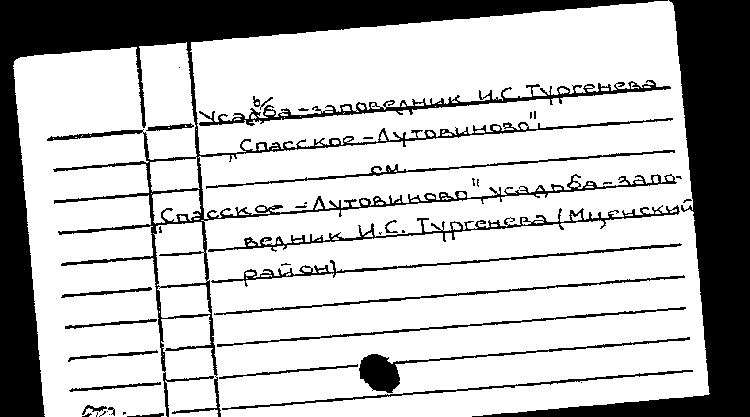 Усадьба-заповедник И.С. Тургенева
„Спасское-Лутовиново".
см.
„Спасское-Лутовиново", усадьба-запо-
ведник И.С. Тургенева (Мценский
район).